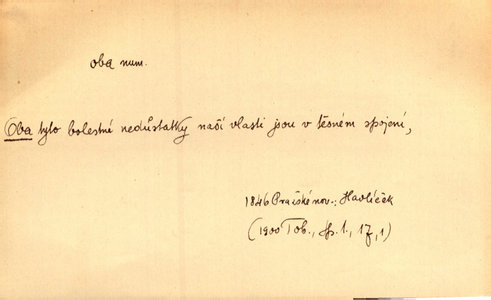 oba num.
Oba tyto bolestné nedůstatky naší vlasti jsou v těsném spojení,
1846 Pražské nov.; Havlíček
(1900 Tob., Sp. 1., 17, 1)